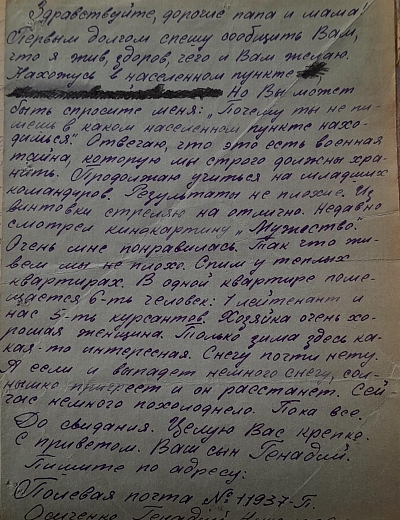 Здравствуйте, дорогие папа и мама!
Первым долгом спешу сообщить Вам,
что я жив, здоров, чего и Вам желаю.
Нахожусь в населенном пункте
Но Вы может
быть спросите меня: „Почему ты не пи-
шешь в каком населенном пункте нахо-
дишься". Отвечаю, что это есть военная
тайна, которую мы строго должны хра-
нить. Продолжаю учиться на младших
командиров. Результаты не плохие. Из
винтовки стреляю на отлично. Недавно
смотрел кинокартину „Мужество".
Очень мне понравилась. Так что жи-
вем мы не плохо. Спим у теплых
квартирах. В одной квартире поме-
щается 6-ть человек: 1 лейтенант и
нас 5-ть курсантов. Хозяйка очень хо-
рошая женщина. Только зима здесь ка-
кая-то интересная. Снегу почти нету.
Я если и выпадет немного снегу, сол-
нышко пригреет и он расстанет. Сей-
час немного похолоднело. Пока все.
До свидания. Целую Вас крепко.
С приветом. Ваш сын Генадий.
Пишите по адресу:
Полевая почта № 11937-П.
Генадий